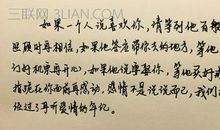 三联网 3LIAN.COM
如果一个人说喜欢你，请等到他百般
照顾时再相信，如果他答应带你去的地方，等他
订好机票再开心，如果他说要娶你，等他买好
指跪在你面前再感动，感情不是说说而已，我们
经过了耳听爱情的年纪。